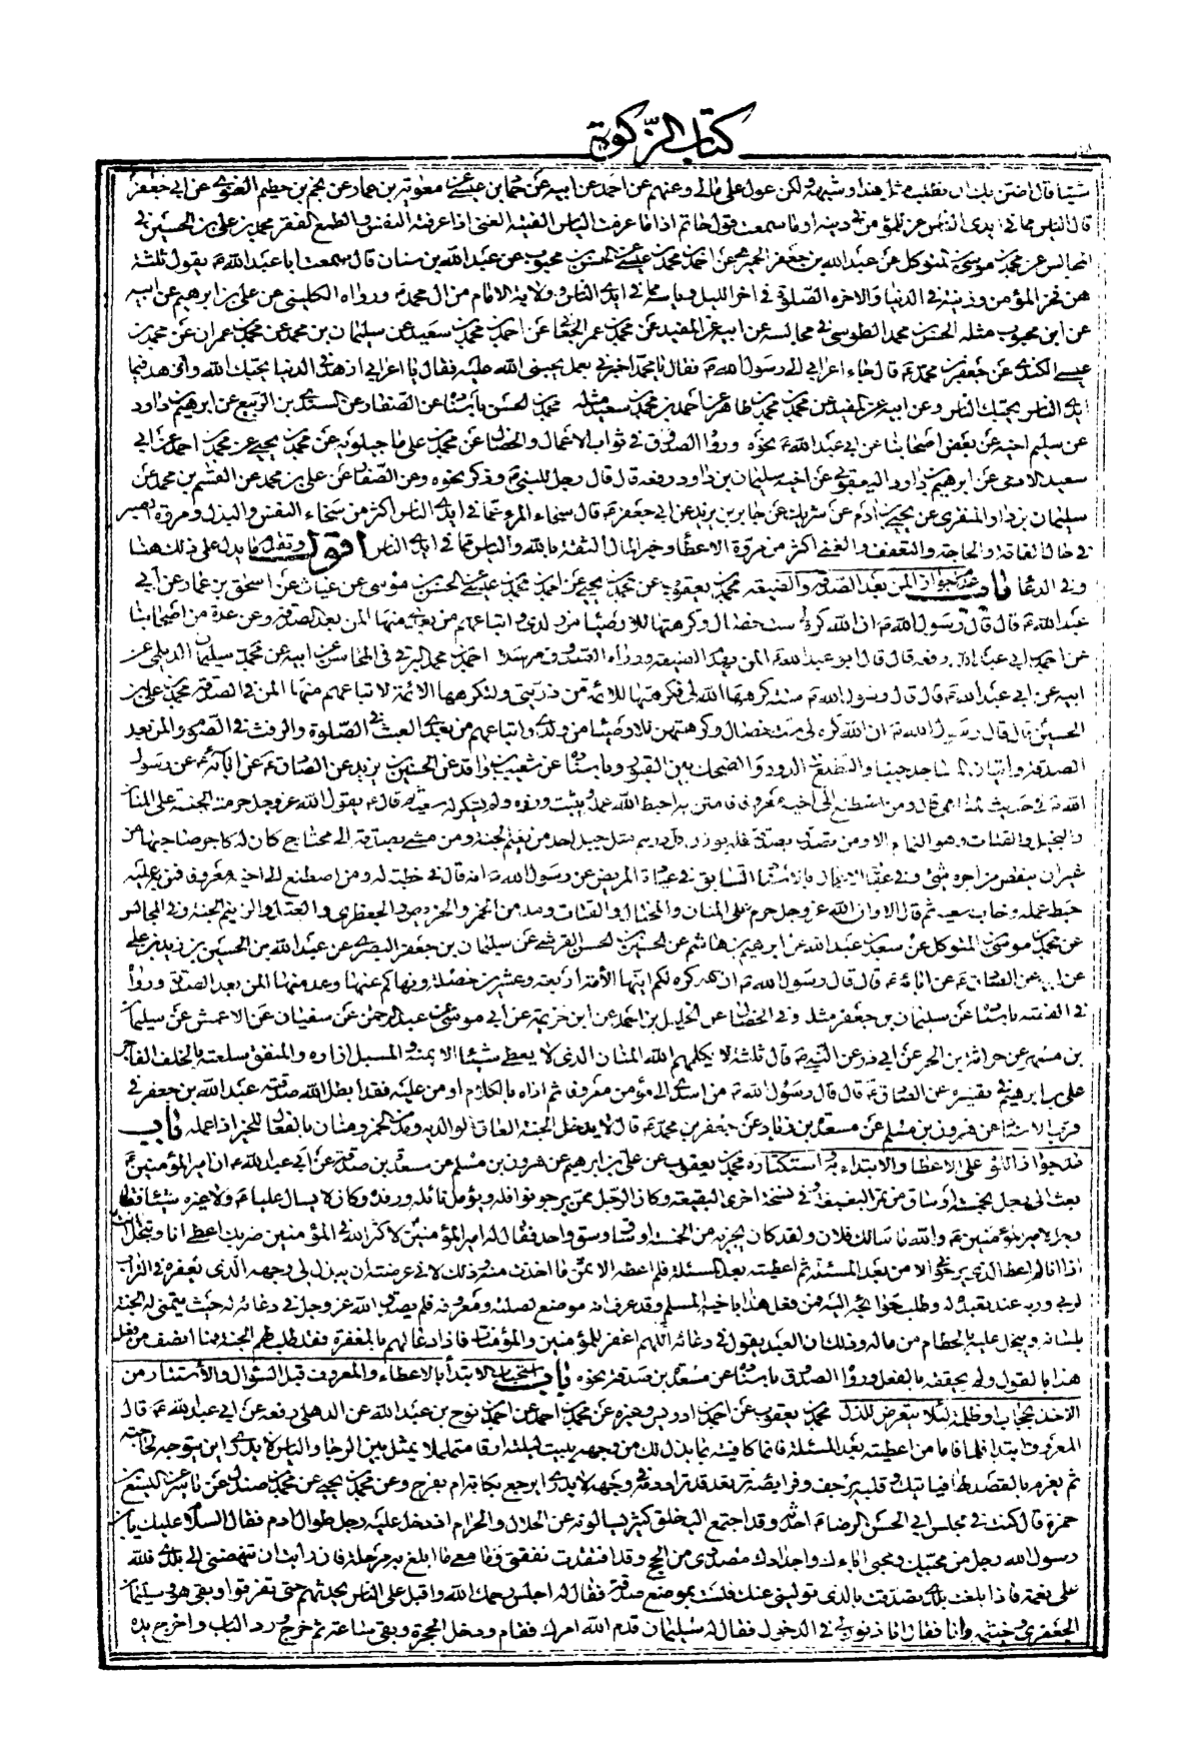 كتاب الزكوة
شيئا قال اضن بك ان تطلب مثل هذا وشبهه لكن عول على مالي وعنهم عن احمد عن ابيه عن حماد بن عيسى عن معوية بن عمار عن نجم بن حطيم الغنوي عن ابي جعفر
قال الياس مما في ايدي الناس عز للمؤمن في دينه او ما سمعت قول حاتم اذا ما عرفت الياس الفيته الغنى اذا عرفته النفس والطمع الفقر محمد بن علي بن الحسين في
المجالس عن محمد بن موسى بن المتوكل عن عبد الله بن جعفر الحميري عن احمد بن محمد بن عيسى عن الحسن بن محبوب عن عبد الله بن سنان قال سمعت ابا عبد الله ع يقول ثلثة
هن فخر المؤمن وزينته في الدنيا والاخرة الصلوة في اخر الليل وياسه مما في ايدي الناس وولاية الامام من ال محمد ورواه الكليني عن علي بن ابراهيم عن ابيه
عن ابن محبوب مثله الحسن بن محمد الطوسي في مجالسه عن ابيه عن المفيد عن محمد بن عمر الجعابي عن احمد بن محمد بن سعيد عن سليمان بن محمد عن محمد بن عمران عن محمد بن
عيسى الكندي عن جعفر بن محمد ع قال جاء اعرابي الى رسول الله ص فقال يا محمد اخبرني بعمل يحبني الله عليه فقال يا اعرابي ازهد في الدنيا يحبك الله وازهد فيما
ايدي الناس يحبك الناس وعن ابيه عن المفيد عن محمد بن محمد بن طاهر عن احمد بن محمد بن سعيد مثله محمد بن الحسن باسناده عن الصفار عن السندي بن الربيع عن ابراهيم بن داود
عن سليم اخيه عن بعض اصحابنا عن ابي عبد الله ع نحوه ورواه الصدوق في ثواب الاعمال والخصال عن محمد بن علي ماجيلويه عن محمد بن يحيى عن محمد بن احمد عن ابي
سعيد الادمي عن ابراهيم بن داود اليعقوبي عن اخيه سليمان بن داود رفعه قال قال رجل للنبي ص وذكر نحوه وعن الصفار عن علي بن محمد عن القسم بن محمد عن
سليمان بن داود المنقري عن يحيى بن ادم عن شريك عن جابر بن يزيد عن ابي جعفر ع قال سخاء المرء عما في ايدي الناس اكثر من سخاء النفس والبذل ومروة الصبر
في حال الفاقة والحاجة والتعفف والغنى اكثر من مروة الاعطاء وخير المال الثقة بالله والياس مما في ايدي الناس اقول وتقدم ما يدل على ذلك هنا
وفي الدعا باب عدم جواز المن بعد الصدقة والصنيعة محمد بن يعقوب عن محمد بن يحيى عن احمد بن محمد بن عيسى عن الحسن بن موسى عن غياث عن اسحق بن عمار عن ابي
عبد الله ع قال قال رسول الله ص ان الله كره لي ست خصال وكرهتها للاوصياء من ولدي واتباعهم من بعدي منها المن بعد الصدقة وعن عدة من اصحابنا
عن احمد بن ابي عبد الله رفعه قال قال ابو عبد الله ع المن يهدم الصنيعة ورواه الصدوق مرسلا احمد بن محمد البرقي في المحاسن عن ابيه عن محمد بن سليمان الديلمي عن
ابيه عن ابي عبد الله ع قال قال رسول الله ص ستة كرهها الله لي فكرهتها للائمة من ذريتي ولتكرهها الائمة لاتباعهم منها المن في الصدقة محمد بن علي بن
الحسين قال قال رسول الله ص ان الله كره لي ست خصال وكرهتهن للاوصياء من ولدي واتباعهم من بعدي العبث في الصلوة والرفث في الصوم والمن بعد
الصدقة واتيان المساجد جنبا والتطلع في الدور والضحك بين القبور وباسناده عن شعيب بن واقد عن الحسين بن زيد عن الصادق ع عن ابائه ع عن رسول
الله ص في حديث المناهي قال ومن اصطنع الى اخيه معروفا فامتن به احبط الله عمله وثبت وزره ولم يشكر له سعيه ثم قال ع يقول الله عز وجل حرمت الجنة على المنان
والبخيل والقتات وهو النمام الا ومن تصدق بصدقة فله بوزن كل درهم مثل جبل احد من نعيم الجنة ومن مشى بصدقة الى محتاج كان له كاجر صاحبها من
غير ان ينقص من اجره شئ وفي عقاب الاعمال بالاسناد السابق في عيادة المريض عن رسول الله ص انه قال في خطبة له ومن اصطنع الى اخيه معروفا فمن به عليه
حبط عمله وخاب سعيه ثم قال الا وان الله عز وجل حرم على المنان والمختال والقتات ومدمن الخمر والحريص والجعظري والعتل والزنيم الجنة وفي المجالس
عن محمد بن موسى بن المتوكل عن سعد بن عبد الله عن ابراهيم بن هاشم عن الحسين بن الحسن القرشي عن سليمان بن جعفر البصري عن عبد الله بن الحسين بن زيد بن علي
عن ابيه عن الصادق ع عن ابائه ع قال قال رسول الله ص ان الله كره لكم ايتها الامة اربعة وعشرين خصلة ونهاكم عنها وعد منها المن بعد الصدقة ورواه
في الفقيه باسناده عن سليمان بن جعفر مثله وفي الخصال عن الخليل بن احمد عن ابن خزيمة عن ابي موسى عن عبد الرحمن عن سفيان عن الاعمش عن سليمان
بن مسهر عن خرشة بن الحر عن ابي ذر عن النبي ص قال ثلثة لا يكلمهم الله المنان الذي لا يعطي شيئا الا بمنة والمسبل ازاره والمنفق سلعته بالحلف الفاجر
علي بن ابراهيم في تفسيره عن الصادق ع قال قال رسول الله ص من اسدى الى مؤمن معروفا ثم اذاه بالكلام او من عليه فقد ابطل الله صدقته عبد الله بن جعفر في
قرب الاسناد عن هرون بن مسلم عن مسعدة بن زياد عن جعفر بن محمد ع قال لا يدخل الجنة العاق لوالديه ومدمن الخمر ومنان بالفعال للخير اذا عمله باب
عدم جواز اللوم على الاعطاء والابتداء به استكثاره محمد بن يعقوب عن علي بن ابراهيم عن هرون بن مسلم عن مسعدة بن صدقة عن ابي عبد الله ع ان امير المؤمنين ع
بعث الى رجل بخمسة اوساق من تمر البغيبغة وفي نسخة اخرى البقيعة وكان الرجل ممن يرجو نوافله ويؤمل نائله ورفده وكان لا يسال عليا ع ولا غيره شيئا فقال
رجل لامير المؤمنين ع والله ما سالك فلان ولقد كان يجزيه من الخمسة اوساق وسق واحد فقال له امير المؤمنين ع لا كثر الله في المؤمنين ضربك اعطي انا وتبخل انت
اذا انا لم اعط الذي يرجوني الا من بعد المسئلة ثم اعطيته بعد المسئلة فلم اعطه الا ثمن ما اخذت منه وذلك لاني عرضته ان يبذل لي وجهه الذي يعفره في التراب
لربي وربه عند تعبده له وطلب حوائجه اليه فمن فعل هذا باخيه المسلم وقد عرف انه موضع لصلته ومعروفه فلم يصدق الله عز وجل في دعائه له حيث يتمنى له الجنة
بلسانه ويبخل عليه بالحطام من ماله وذلك ان العبد يقول في دعائه اللهم اغفر للمؤمنين والمؤمنات فاذا دعا لهم بالمغفرة فقد طلب لهم الجنة فما انصف من فعل
هذا بالقول ولم يحققه بالفعل ورواه الصدوق باسناده عن مسعدة بن صدقة نحوه باب استحباب الابتداء بالاعطاء والمعروف قبل السؤال والاستتار من
الاخذ بحجاب او ظلمة لئلا يتعرض للذل محمد بن يعقوب عن احمد بن ادريس وغيره عن محمد بن احمد عن احمد بن نوح بن عبد الله عن الذهلي رفعه عن ابي عبد الله ع قال
المعروف ابتداء فاما من اعطيته بعد المسئلة فانما كافيته بما بذل لك من وجهه يبيت ليلته ارقا متململا يمثل بين الرجاء والياس لا يدري اين يتوجه لحاجته
ثم يعزم بالقصد لها فياتيك وقلبه يرجف وفرائصه ترتعد قد ترى دمه في وجهه لا يدري ايرجع بكابة ام بفرح وعن محمد بن يحيى عن محمد بن صندل عن ياسر عن اليسع بن
حمزة قال كنت في مجلس ابي الحسن الرضا ع احدثه وقد اجتمع اليه خلق كثير يسالونه عن الحلال والحرام اذ دخل عليه رجل طوال ادم فقال السلام عليك يا بن
رسول الله رجل من محبيك ومحبي ابائك واجدادك مصدري من الحج وقد افتقدت نفقتي وما معي ما ابلغ به مرحلة فان رايت ان تنهضني الى بلدي فلله
علي نعمة فاذا بلغت بلدي تصدقت بالذي توليني عنك فلست بموضع صدقة فقال له اجلس رحمك الله واقبل على الناس يحدثهم حتى تفرقوا وبقي هو وسليمان
الجعفري وخيثمة وانا فقال اتاذنون لي في الدخول فقال له سليمان قدم الله امرك فقام ودخل الحجرة وبقي ساعة ثم خرج ورد الباب واخرج يده